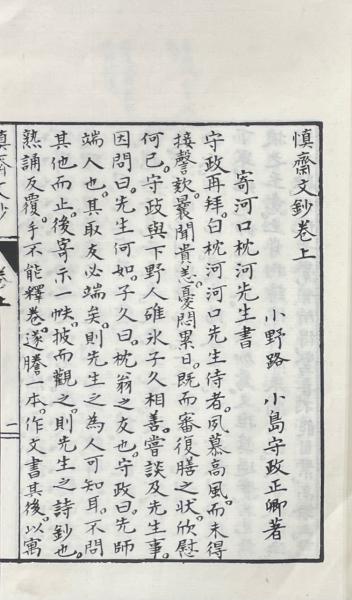 慎齋文鈔卷上
小野路　小島守政正卿著
寄河口枕河先生書
守政再拜白枕河河口先生侍者夙慕高風而未得
接謦欬曩聞貴恙憂悶累日既而審復膳之狀欣慰
何已守政與下野人碓氷子久相善嘗談及先生事
因問曰先生何如子久曰枕翁之友也守政曰先師
端人也其取友必端矣則先生之為人可知耳不問
其他而止後寄示一帙披而觀之則先生之詩鈔也
熟誦反覆手不能釋卷遂謄一本作文書其後以寓
慎齋文鈔
卷上
一